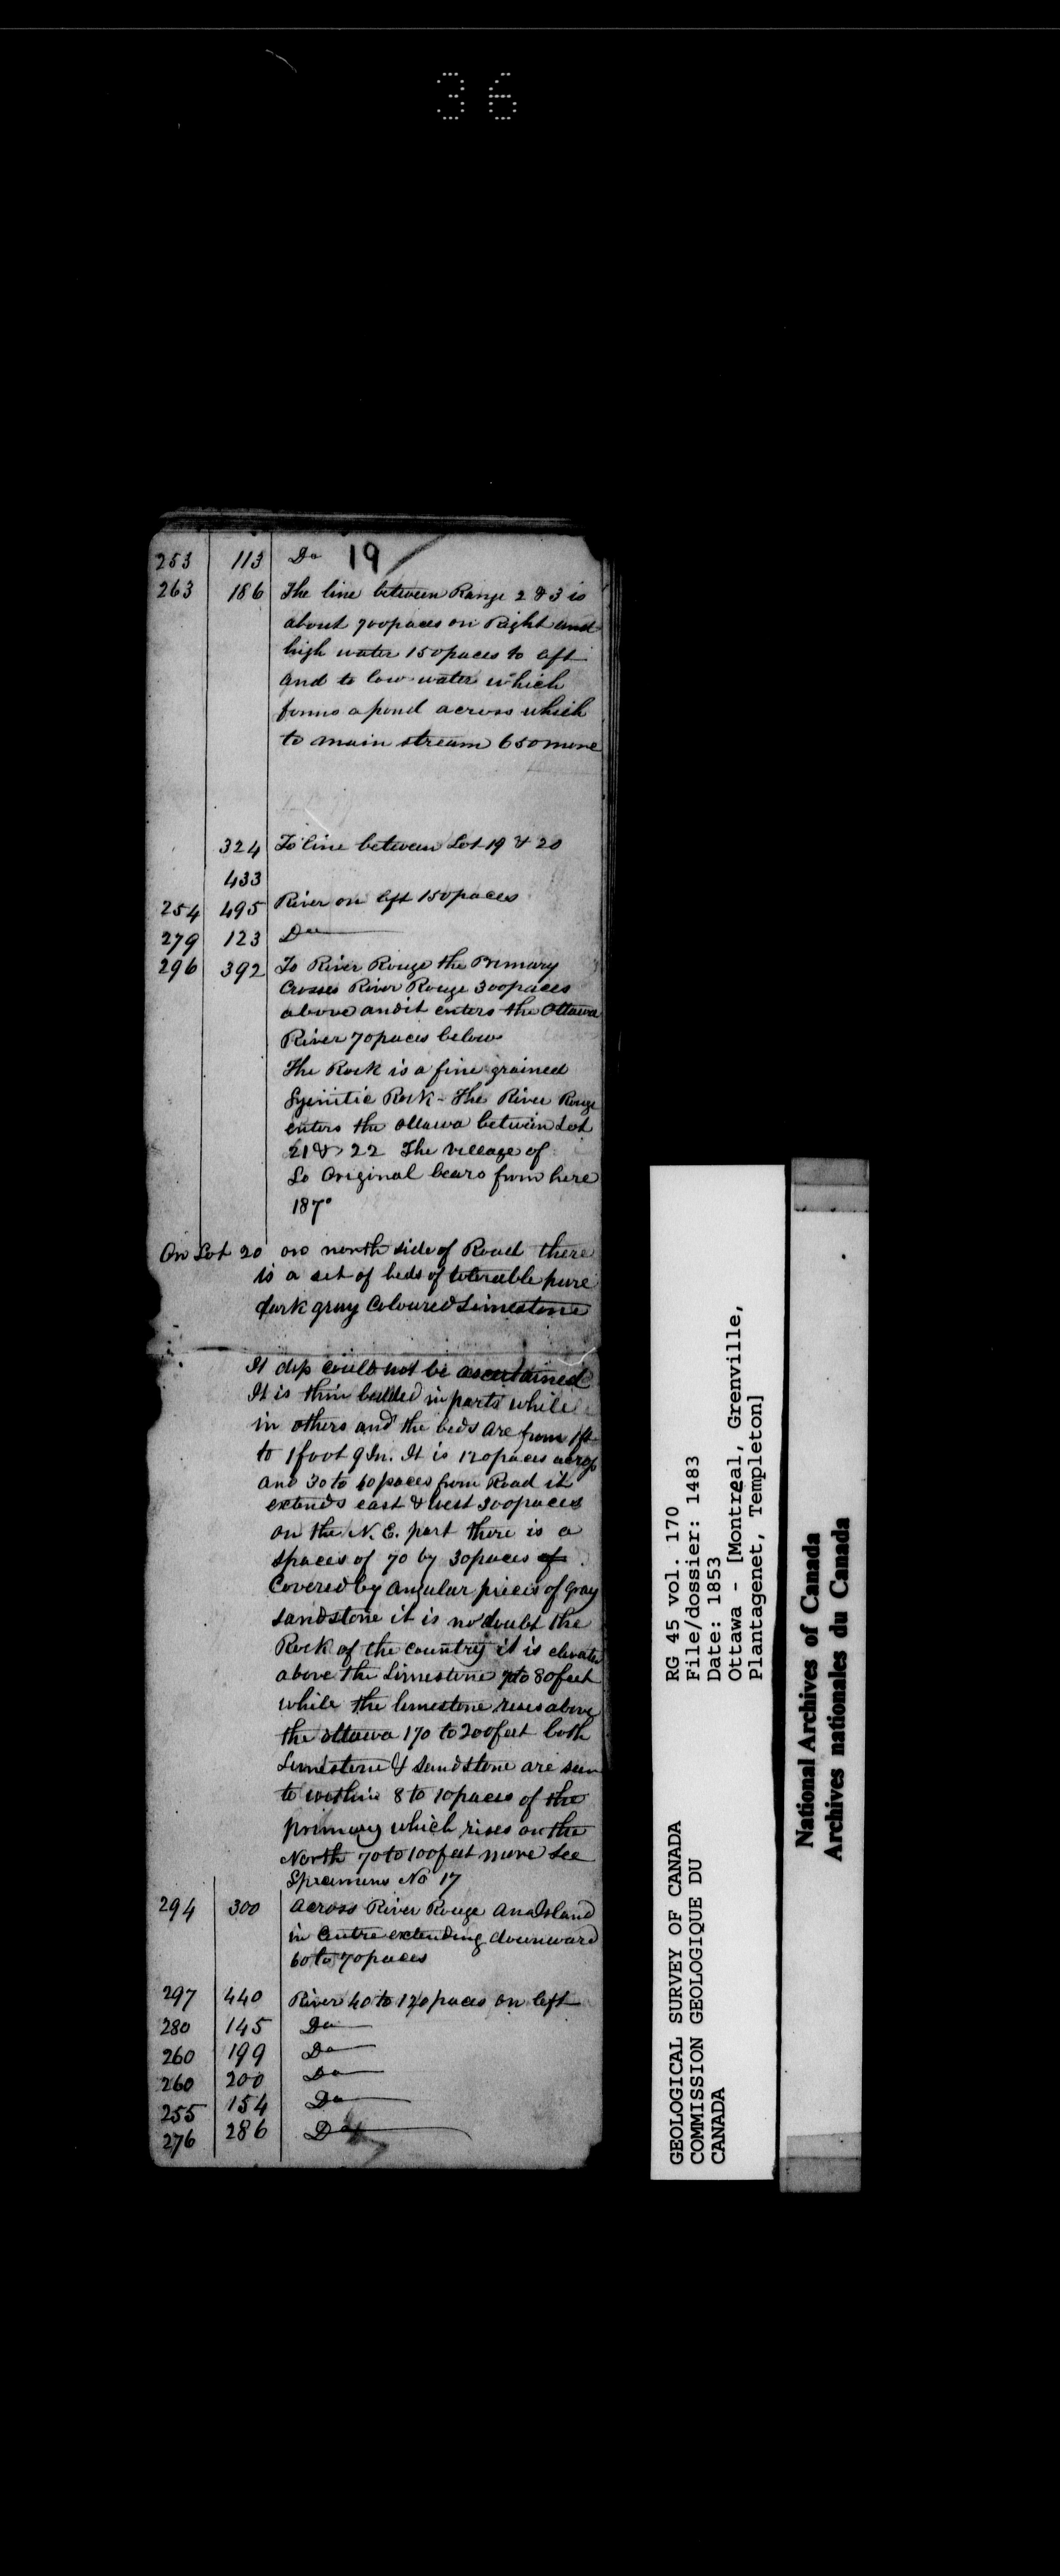 36
253 113 Do 19
263 186 The line between Range 2 & 3 is
about 700 paces on Right and
high water 150 paces to left
and to low water which
forms a pond across which
to main stream 650 more
324 To line between Lot 19 & 20
433
254 495 River on left 150 paces
279 123 Do
296 392 To River Rouge the Primary
Crosses River Rouge 300 paces
above and it enters the Ottawa
River 70 paces below
The Rock is a fine grained
Syinitic Rock - The River Rouge
enters the Ottawa between Lot
21 & 22 The village of
Lo Original bears from here
187°
On Lot 20 on north side of Road there
is a set of beds of tolerable pure
dark gray Coloured Limestone
It dip could not be ascertained
It is thin bedded in parts while
in others and the beds are from 1 ft
to 1 foot 9 In. It is 120 paces across
and 30 to 60 paces from Road it
extends east & west 300 paces
on the N. E. part there is a
spaces of 70 by 30 paces of
Covered by angular pieces of gray
sandstone it is no doubt the
Rock of the country it is elevated
above the Limestone 70 to 80 feet
while the limestone rises above
the Ottawa 170 to 200 feet both
Limestone & sandstone are seen
to within 8 to 10 paces of the
primary which rises on the
North 70 to 100 feet more See
Specimens No 17
294 300 Across River Rouge an Island
in Centre extending downward
60 to 70 paces
297 440 River 40 to 120 paces on left
280 145 Do
260 199 Do
260 200 Do
255 154 Do
276 286 Do
GEOLOGICAL SURVEY OF CANADA
COMMISSION GEOLOGIQUE DU
CANADA
RG 45 vol. 170
File/dossier: 1483
Date: 1853
Ottawa - [Montreal, Grenville,
Plantagenet, Templeton]
National Archives of Canada
Archives nationales du Canada